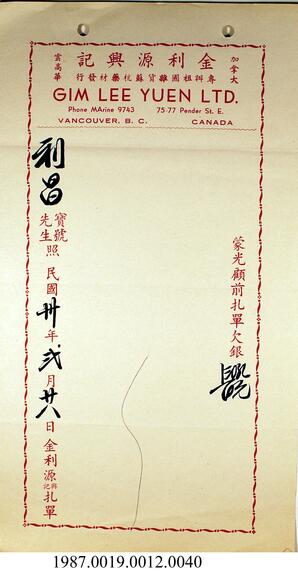 加拿大
金利源興記
雲高華
專辦祖國雜貨蘇杭藥材發行
GIM LEE YUEN LTD.
Phone MArine 9743 75-77 Pender St. E.
VANCOUVER, B. C. CANADA
蒙光顧前扎單欠銀
利昌
寶號
先生
照
民國卅年弍月廿八日金利源興記扎單
1987.0019.0012.0040